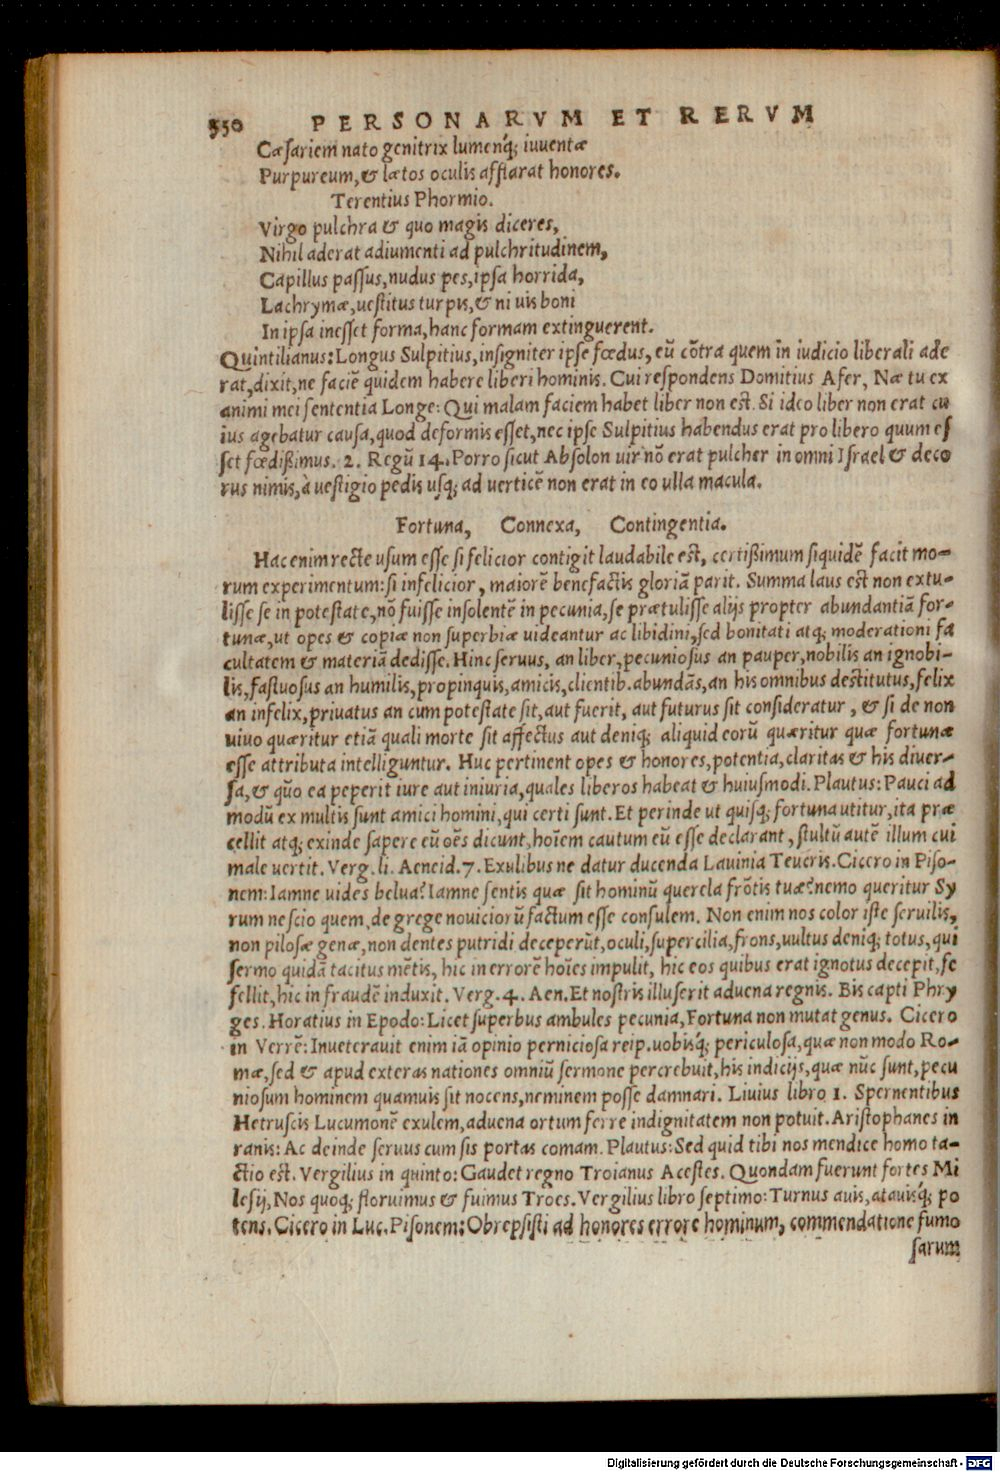 550 PERSONARVM ET RERVM
Cæsariem nato genitrix lumenq́; iuuentæ
Purpureum, & lætos oculis afflarat honores.
Terentius Phormio.
Virgo pulchra & quo magis diceres,
Nihil aderat adiumenti ad pulchritudinem,
Capillus passus, nudus pes, ipsa horrida,
Lachrymæ, uestitus turpis, & ni uis boni
In ipsa inesset forma, hanc formam extinguerent.
Quintilianus: Longus Sulpitius, insigniter ipse fœdus, eũ cõtra quem in iudicio liberali ade
rat, dixit, ne faciẽ quidem habere liberi hominis. Cui respondens Domitius Afer, Næ tu ex
animi mei sententia Longe: Qui malam faciem habet liber non est. Si ideo liber non erat cu
ius agebatur causa, quod deformis esset, nec ipse Sulpitius habendus erat pro libero quum es
set fœdißimus. 2. Regũ 14. Porro sicut Absolon uir nõ erat pulcher in omni Israel & deco
rus nimis, à uestigio pedis usq; ad uerticẽ non erat in eo ulla macula.
Fortuna, Connexa, Contingentia.
Hac enim recte usum esse si felicior contigit laudabile est, certißimum siquidẽ facit mo-
rum experimentum: si infelicior, maiorẽ benefactis gloriã parit. Summa laus est non extu-
lisse se in potestate, nõ fuisse insolentẽ in pecunia, se prætulisse alijs propter abundantiã for-
tunæ, ut opes & copiæ non superbiæ uideantur ac libidini, sed bonitati atq; moderationi fa
cultatem & materiã dedisse. Hinc seruus, an liber, pecuniosus an pauper, nobilis an ignobi-
lis, fastuosus an humilis, propinquis, amicis, clientib. abundãs, an his omnibus destitutus, felix
an infelix, priuatus an cum potestate sit, aut fuerit, aut futurus sit consideratur, & si de non
uiuo quæritur etiã quali morte sit affectus aut deniq; aliquid eorũ quæritur quæ fortunæ
esse attributa intelliguntur. Huc pertinent opes & honores, potentia, claritas & his diuer-
sa, & quõ ea peperit iure aut iniuria, quales liberos habeat & huiusmodi. Plautus: Pauci ad
modũ ex multis sunt amici homini, qui certi sunt. Et perinde ut quisq; fortuna utitur, ita præ
cellit atq; exinde sapere eũ oẽs dicunt, hoĩem cautum eũ esse declarant, stultũ autẽ illum cui
male uertit. Verg. li. Aeneid. 7. Exulibus ne datur ducenda Lauinia Teucris. Cicero in Piso-
nem: Iamne uides belua? Iamne sentis quæ sit hominũ querela frõtis tuæ? nemo queritur Sy
rum nescio quem, de grege nouiciorũ factum esse consulem. Non enim nos color iste seruilis,
non pilosæ genæ, non dentes putridi deceperũt, oculi, supercilia, frons, uultus deniq; totus, qui
sermo quidã tacitus mẽtis, hic in errorẽ hoĩes impulit, hic eos quibus erat ignotus decepit, fe
fellit, hic in fraudẽ induxit. Verg. 4. Aen. Et nostris illuserit aduena regnis. Bis capti Phry
ges. Horatius in Epodo: Licet superbus ambules pecunia, Fortuna non mutat genus. Cicero
in Verrẽ: Inueterauit enim iã opinio perniciosa reip. uobisq́; periculosa, quæ non modo Ro-
mæ, sed & apud exteras nationes omniũ sermone percrebuit, his indicijs, quæ nũc sunt, pecu
niosum hominem quamuis sit nocens, neminem posse damnari. Liuius libro 1. Spernentibus
Hetruscis Lucumonẽ exulem, aduena ortum ferre indignitatem non potuit. Aristophanes in
ranis: Ac deinde seruus cum sis portas comam. Plautus: Sed quid tibi nos mendice homo ta-
ctio est. Vergilius in quinto: Gaudet regno Troianus Acestes. Quondam fuerunt fortes Mi
lesij, Nos quoq; floruimus & fuimus Troes. Vergilius libro septimo: Turnus auis, atauisq́; po
tens. Cicero in Luc. Pisonem: Obrepsisti ad honores errore hominum, commendatione fumo
sarum
Digitalisierung gefördert durch die Deutsche Forschungsgemeinschaft - DFG